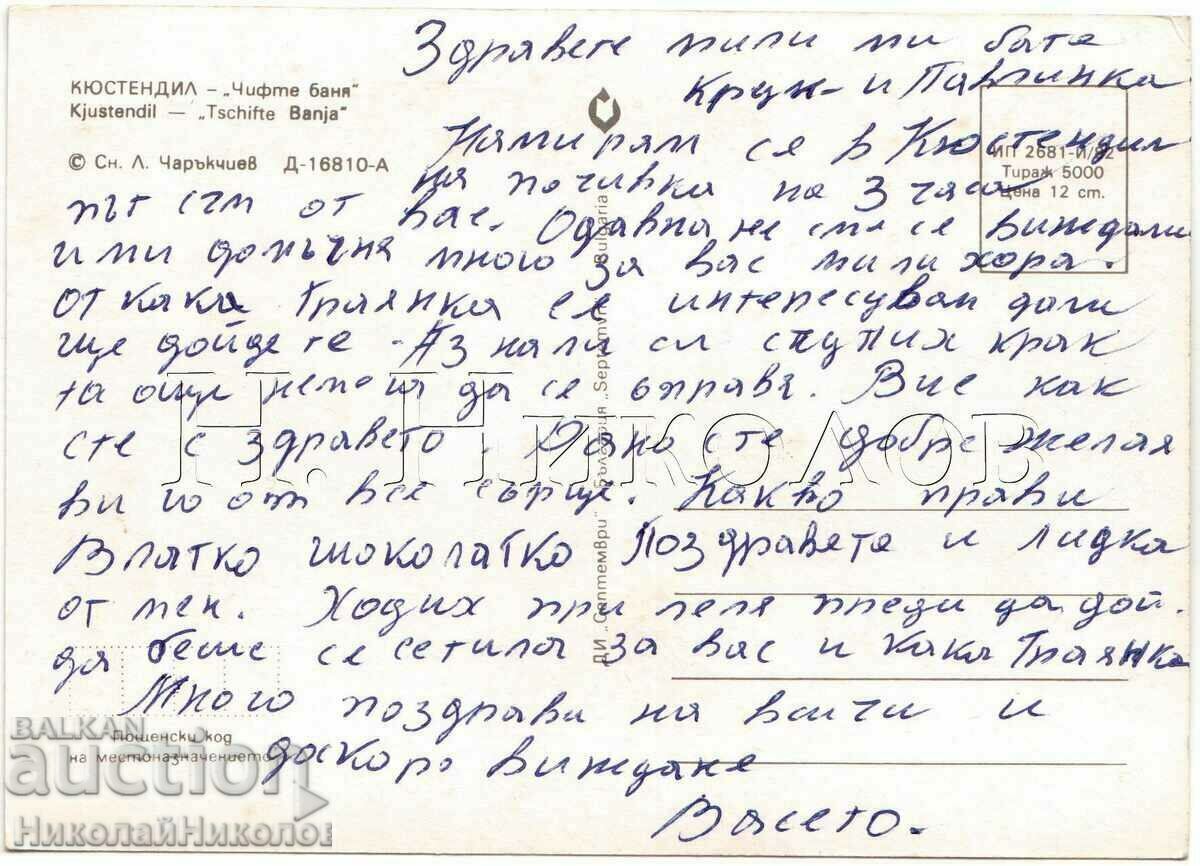 Здравете мили ми бате
КЮСТЕНДИЛ – „Чифте баня"
Kjustendil — „Tschifte Banja"
Крум и Павлинка
Намирям се в Кюстендил
© Сн. Л. Чаръкчиев Д-16810-А
ИП 2681-И/82
Тираж 5000
Цена 12 ст.
на почивка на 3 часа
път съм от вас. Одавна не сме се виждали
и ми домъчня много за вас мили хора.
от кака Траянка се интересувах дали
ще дойдете - Аз нали си счупих крак
та още немога да се оправя. Вие как
сте с здравето. Дано сте добре желая
ви го от все сърце. Какво прави
Златко шоколатко Поздравете и Лидка
от мен. Ходих при леля преди да дой-
да беше се сетила за вас и кака Траянка
Много поздрави на всичи и
доскоро виждане
Васето.
Пощенски код
на местоназначението
ДИ „Септември" България „Septemvri" Bulgaria
Н. Николов
BALKAN
auction
НиколайНиколов